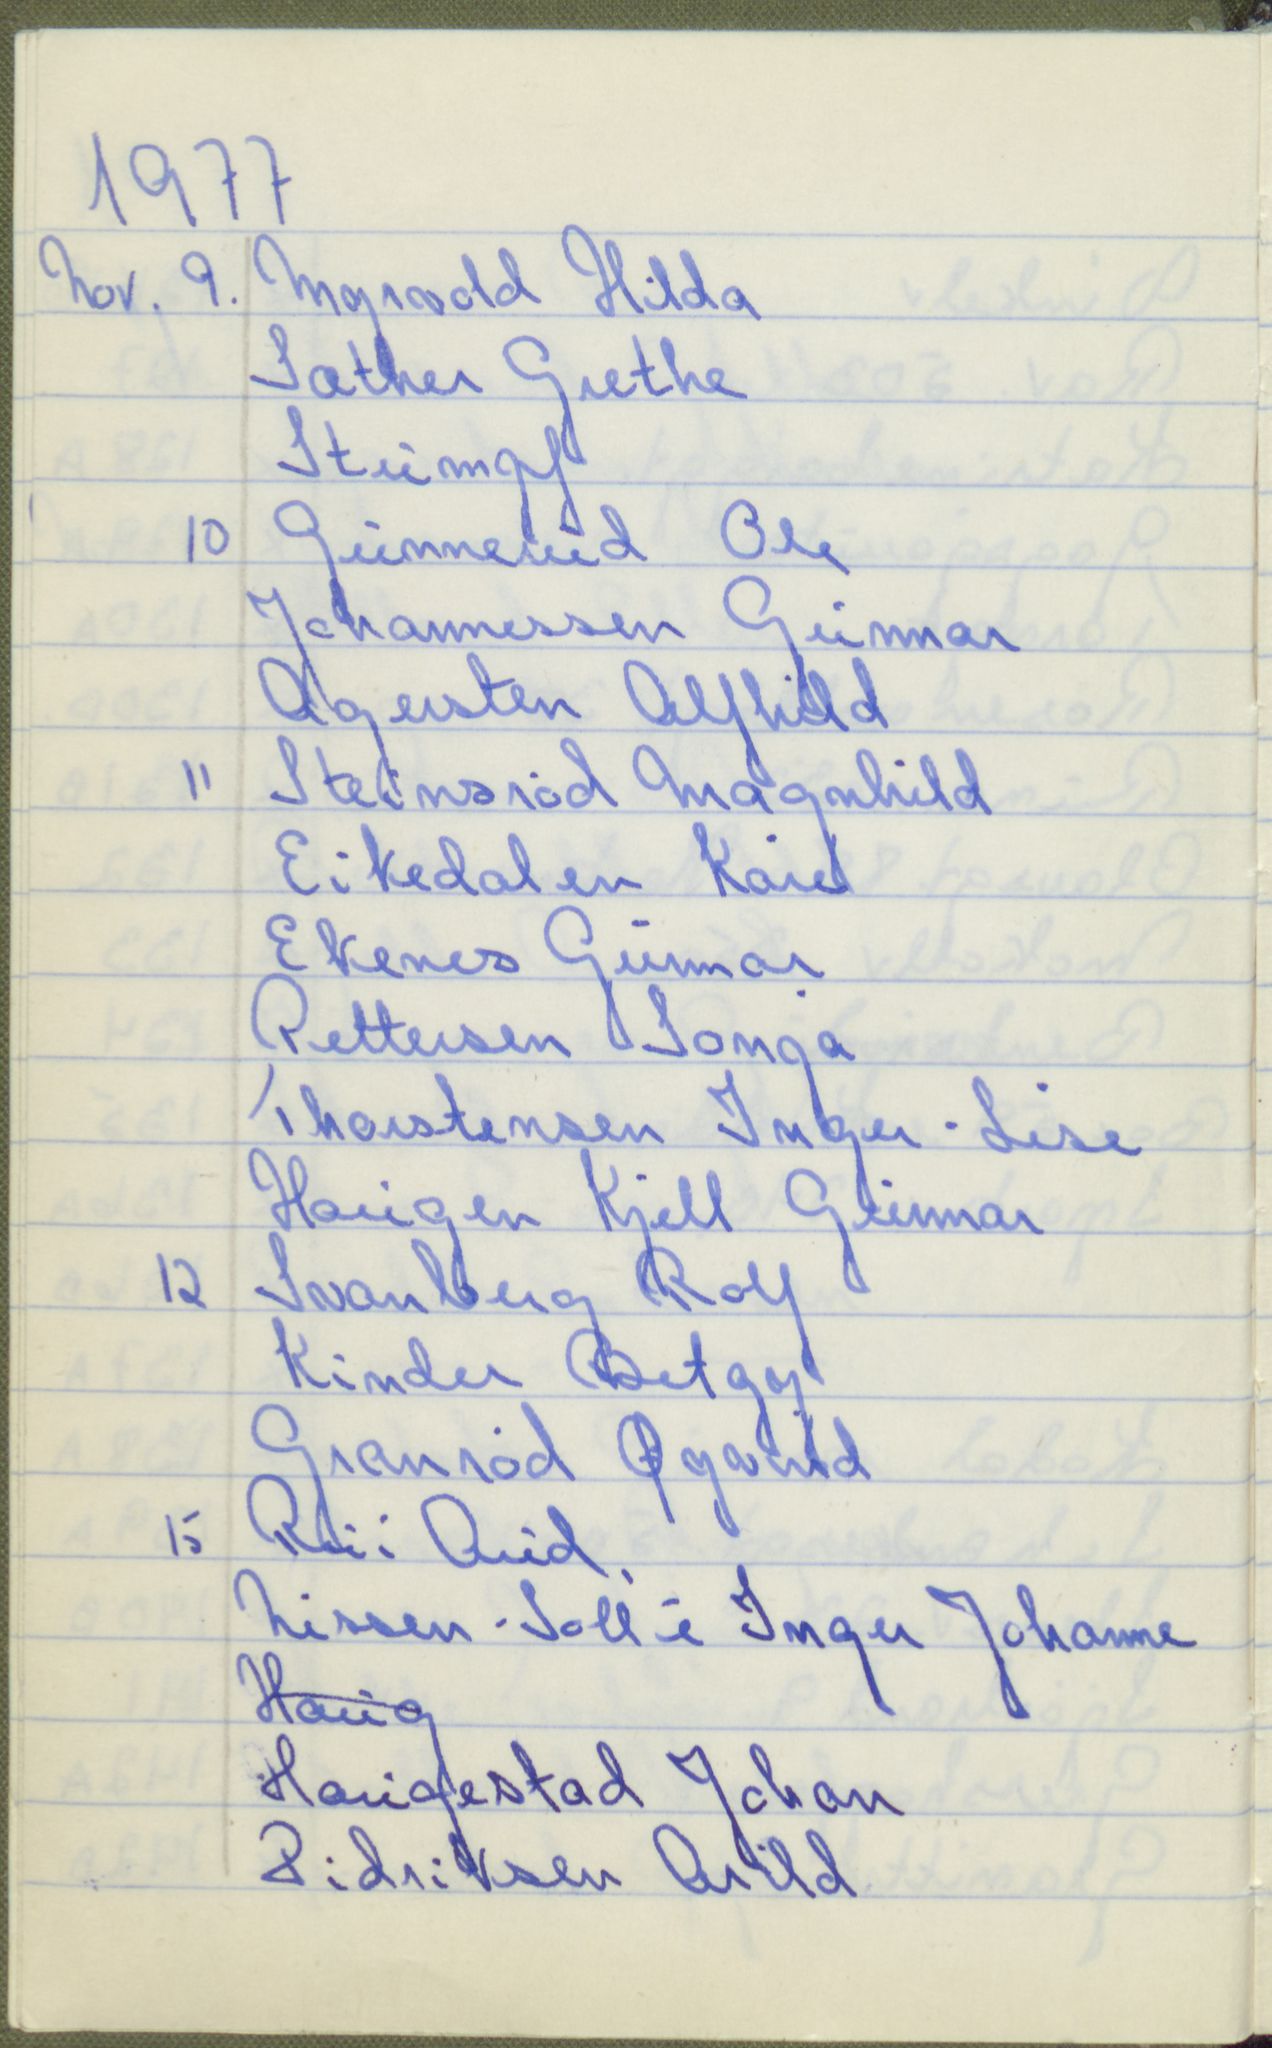 1977
Nov. 9. Myrvold Hilda
Sæther Grethe
Stumpf
10 Gunnerud Ole
Johannessen Gunnar
Agersten Alfhild
11 Steinsrød Magnhild
Eikedalen Kåre
Ekenes Gunnar
Pettersen Sonja
Thorstensen Inger-Lise
Haugen Kjell Gunnar
12 Svanberg Rolf
Kinder Betzy
Granrød Øyvind
15 Rui Arid
Nissen-Sollie Inger Johanne
Haug
Haugestad Johan
Didriksen Arild